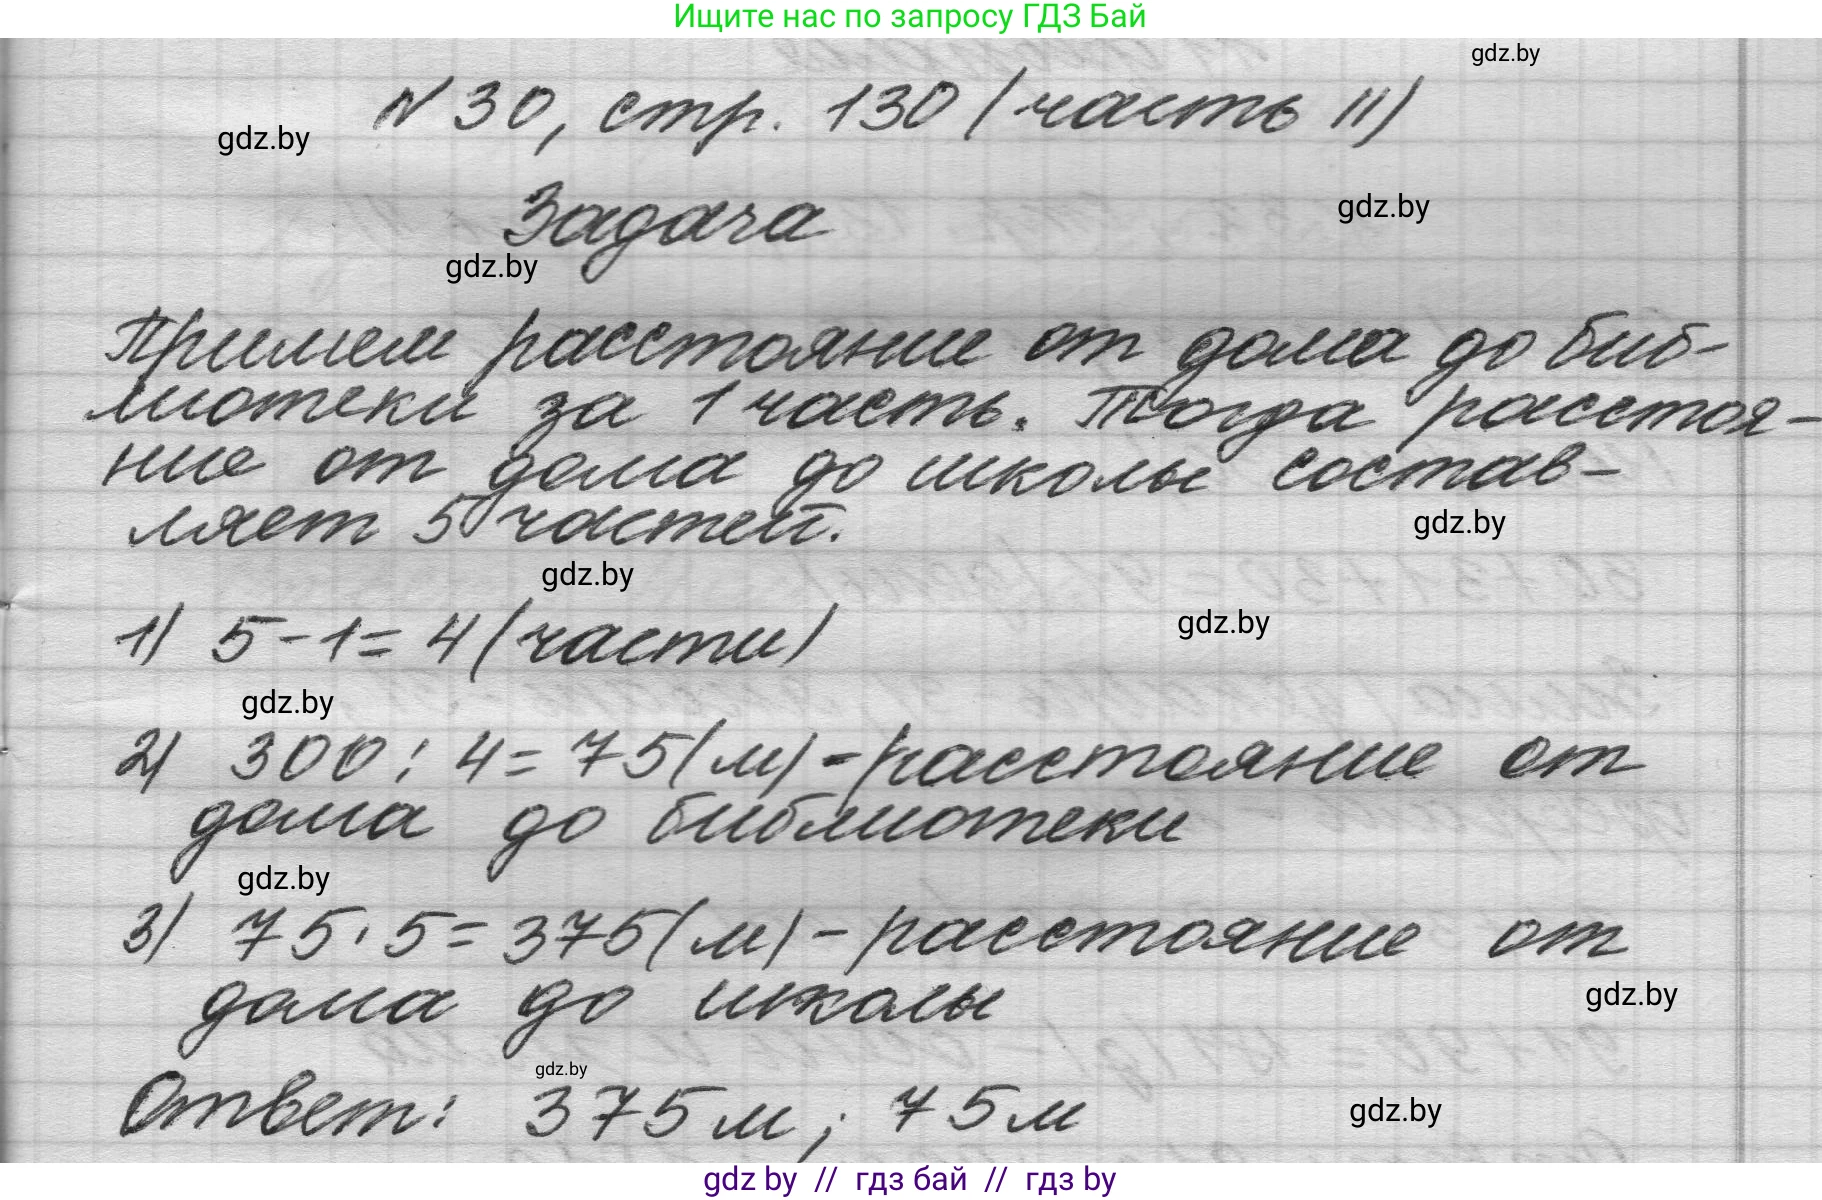 Ищите нас по запросу ГДЗ Бай
gdz.by
N 30, стр. 130 (часть II)
gdz.by
Задача
gdz.by
gdz.by
Примем расстояние от дома до биб-
лиотеки за 1 часть. Тогда расстоя-
ние от дома до школы состав-
ляет 5 частей.
gdz.by
gdz.by
1) 5-1=4(части)
gdz.by
gdz.by
2) 300:4=75(м)-расстояние от
дома до библиотеки
gdz.by
3) 75·5=375(м)-расстояние от
дома до школы
gdz.by
gdz.by
Ответ: 375м; 75м
gdz.by
gdz.by // гдз бай // гдз by